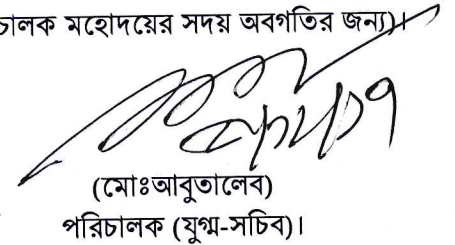 চালক মহোদয়ের সদয় অবগতির জন্য)।
(মোঃআবুতালেব)
পরিচালক (যুগ্ম-সচিব)।